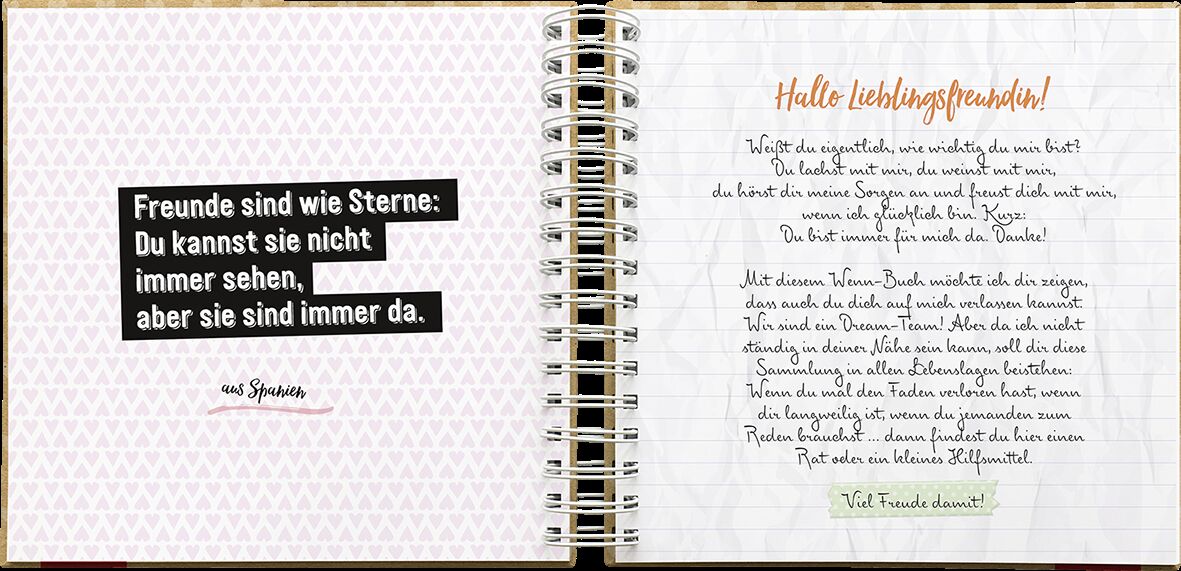 Freunde sind wie Sterne:
Du kannst sie nicht
immer sehen,
aber sie sind immer da.
aus Spanien
Hallo Lieblingsfreundin!
Weißt du eigentlich, wie wichtig du mir bist?
Du lachst mit mir, du weinst mit mir,
du hörst dir meine Sorgen an und freust dich mit mir,
wenn ich glücklich bin. Kurz:
Du bist immer für mich da. Danke!
Mit diesem Wenn-Buch möchte ich dir zeigen,
dass auch du dich auf mich verlassen kannst.
Wir sind ein Dream-Team! Aber da ich nicht
ständig in deiner Nähe sein kann, soll dir diese
Sammlung in allen Lebenslagen beistehen:
Wenn du mal den Faden verloren hast, wenn
dir langweilig ist, wenn du jemanden zum
Reden brauchst ... dann findest du hier einen
Rat oder ein kleines Hilfsmittel.
Viel Freude damit!